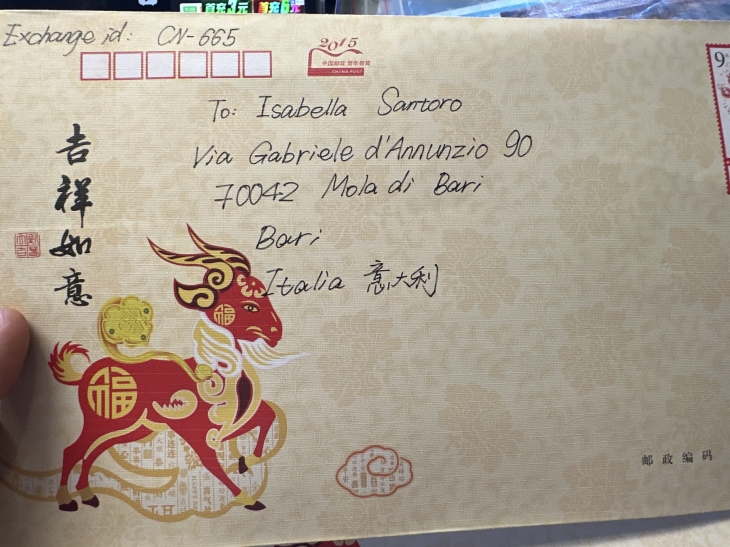 首充3元 首充6元
Exchange id: CN-665
2015
中国邮政 贺年有奖
CHINA POST
To: Isabella Santoro
Via Gabriele d'Annunzio 90
70042 Mola di Bari
Bari
Italia 意大利
吉祥如意
福
福
9
邮政编码